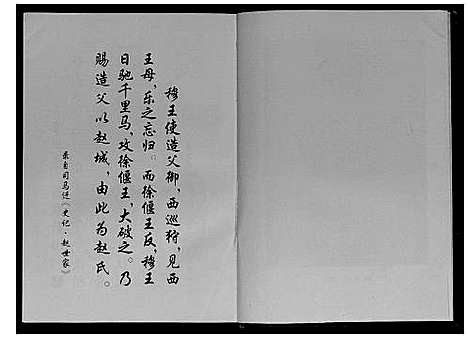 穆王使造父御，西巡狩，见西
王母，乐之忘归。而徐偃王反，穆王
日驰千里马，攻徐偃王，大破之。乃
赐造父以赵城，由此为赵氏。
录自司马迁《史记·赵世家》